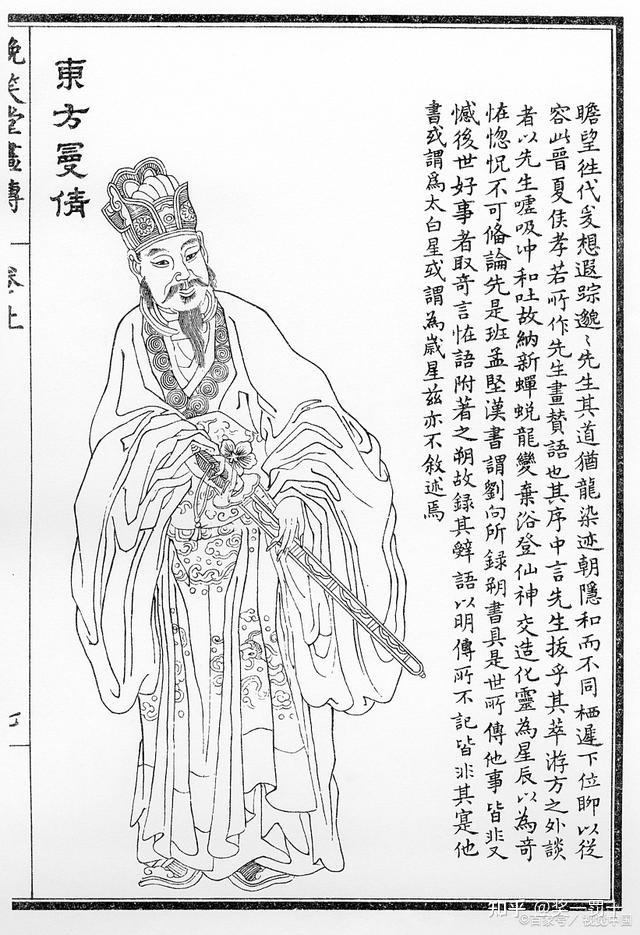 瞻望徃代爰想遐踪邈〻先生其道猶龍染迹朝隱和而不同栖遲下位聊以從
容此晉夏侯孝若所作先生畫贊語也其序中言先生拔乎其萃游方之外談
者以先生噓吸冲和吐故納新蟬蛻龍變棄俗登仙神交造化靈為星辰以為奇
恠惚怳不可俻論先是班孟堅漢書謂劉向所録朔書具是世所傳他事皆非又
憾後世好事者取奇言恠語附著之朔故録其辤語以明傳所不記皆非其寔他
書或謂爲太白星或謂為歲星茲亦不敘述焉
東方曼倩
晚笑堂畫傳
卷上
知乎
©百家号/视觉中国